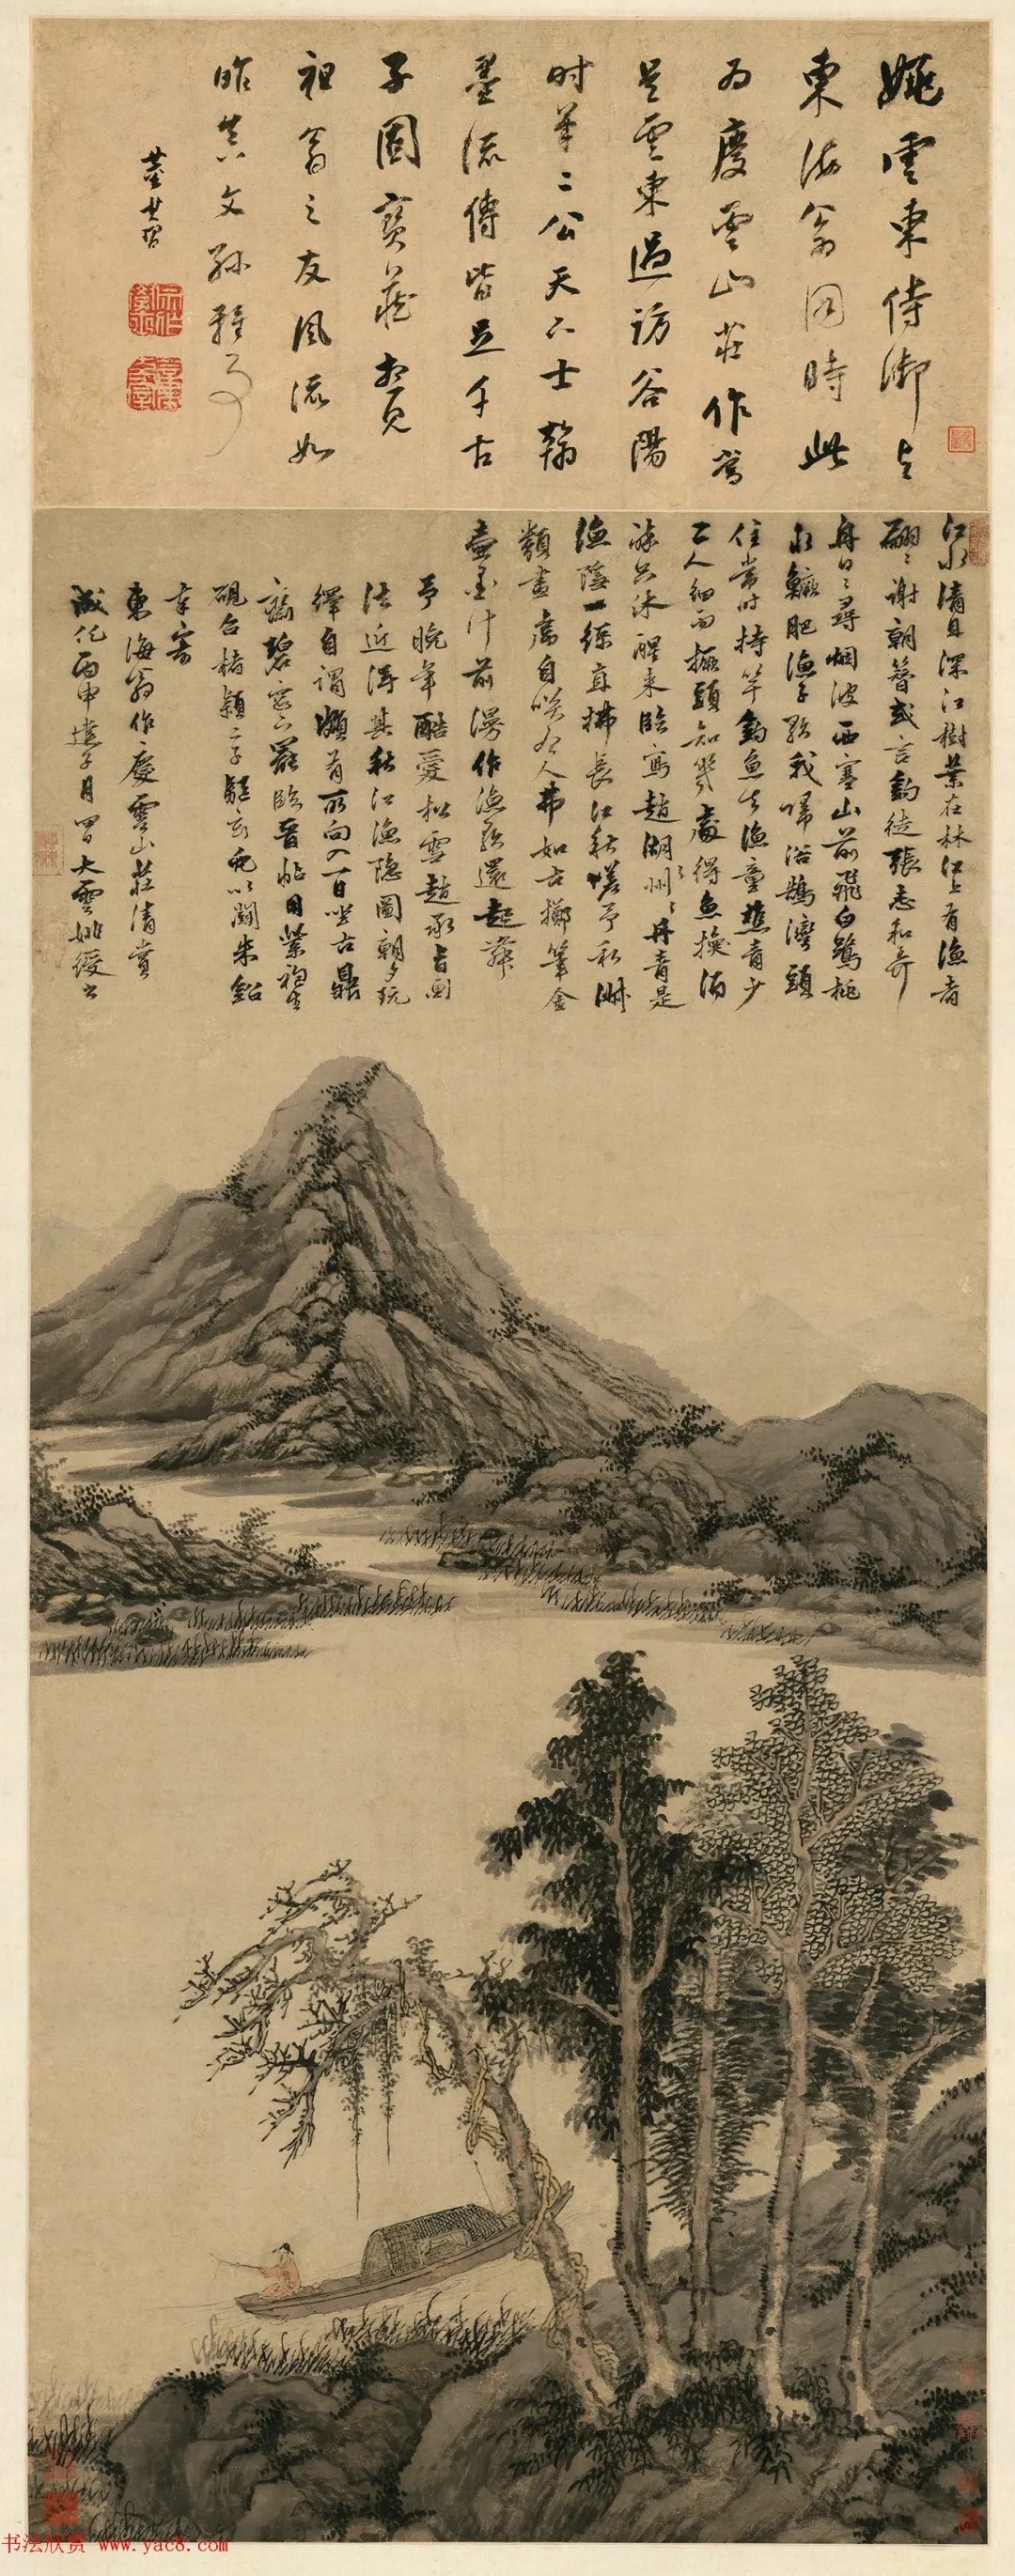 姚雲東侍御與
東海翁同時此
為慶雲山莊作當
是雲東過訪谷陽
時筆二公天下士翰
墨流傳皆足千古
子固寶藏相見
祖翁之友風流如
昨真文孫雅事
董其昌
江水清且深江樹葉在林江上有漁者
翩翩謝朝簪或言釣徒張志和弄
舟日日尋烟波西塞山前飛白鷺桃
水鱖肥漁子歌我歸浴鵠灣頭
住常時持竿釣魚去漁童樵青少
二人細雨撅頭知幾處得魚換酒
醉共沐醒來臨寫趙湖州湖州丹青是
漁隱一練直拂長江秋嗟予私淑
類畫虎自咲令人弗如古擲筆金
壺墨汁前漫作漁歌還起舞
予晚年酷愛松雪趙承旨畫
法近得其秋江漁隱圖朝夕玩
繹自謂頗有所向入一日坐古鼎
硯合楮穎二子
幸寄
東海翁作慶雲山莊清賞
成化丙申歲子月四日大雲姚綬書
书法欣赏 www.yac8.com